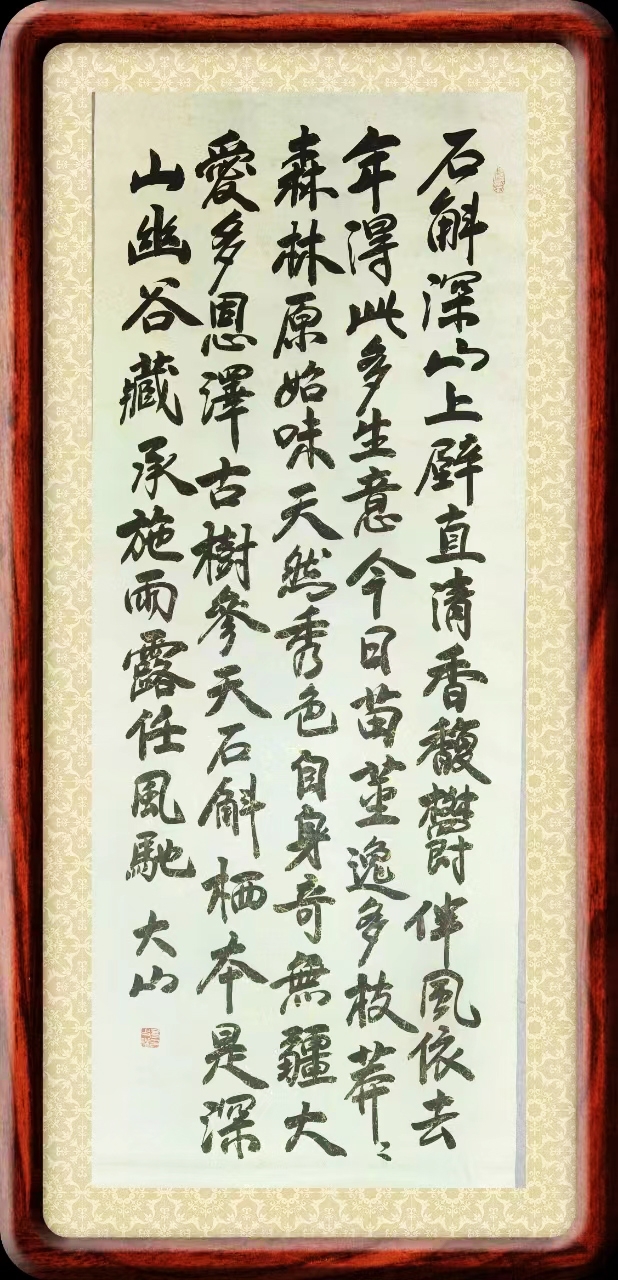 石斛深山上壁直清香馥欝伴風依去
年得此多生意今日苗莖逸多枝莽〻
森林原始味天然秀色自身奇無疆大
愛多恩澤古樹參天石斛栖本是深
山幽谷藏承施雨露任風馳
大山